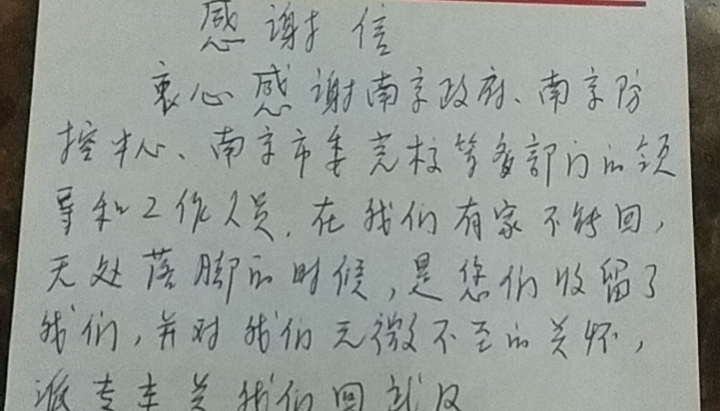 感谢信
衷心感谢南京政府、南京防
控中心、南京市委党校等多部门的领
导和工作人员。在我们有家不能回，
无处落脚的时候，是您们收留了
我们，并对我们无微不至的关怀，
派专车送我们回武汉